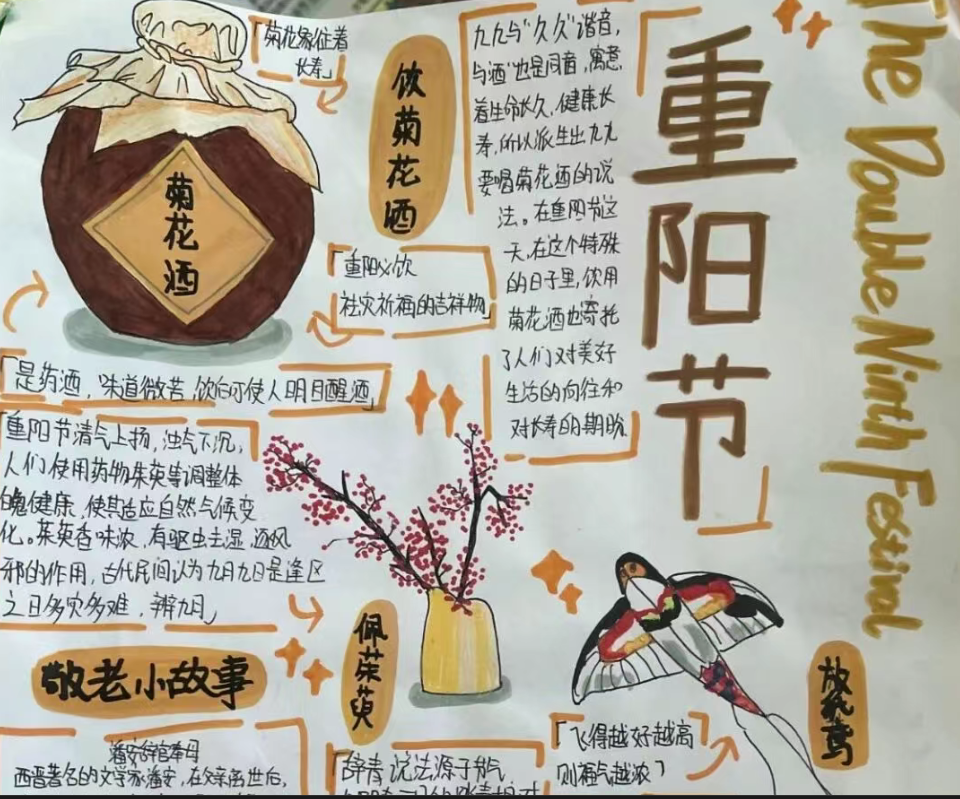 The Double Ninth Festival
重阳节
「菊花象征着
长寿」
饮菊花酒
菊花酒
九九与"久久"谐音,
与酒"也是同音,寓意
着生命长久、健康长
寿,所以派生出九九
要喝菊花酒的说
法。在重阳节这
天,在这个特殊
的日子里,饮用
菊花酒也寄托
了人们对美好
生活的向往和
对长寿的期盼
「重阳必饮
祛灾祈福的吉祥物」
「是药酒,味道微苦,饮后可使人明目醒酒」
重阳节清气上扬,浊气下沉,
人们使用药物茱萸等调整体
健康,使其适应自然气候变
化。茱萸香味浓,有驱虫去湿,逐风
邪的作用,古代民间认为九月九日是逢凶
之日多灾多难,
佩茱萸
敬老小故事
潘安辞官奉母
西晋著名的文学家潘安,在父亲离世后,
辞青说法源于节气
放纸鸢
「飞得越好越高
则福气越浓」